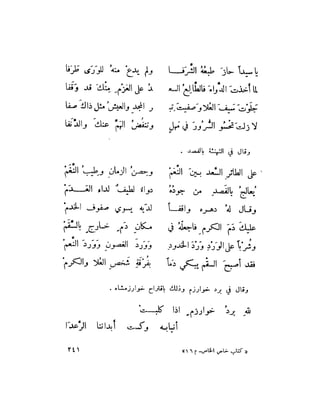 يا سيداً حازَ طبعُهُ الشَّرفــا ولم يدعْ منهُ للوَرَى طرَفا
لما أخذتَ الدَّواءَ فالطَّالِعُ السعـ ـدُ على العَزْمِ مِنْكَ قد وقفا
جَلَوْتَ سيفَ العُلا وصفيتَ تِبـ ـرَ المجدِ والعيشُ مثل ذاكَ صفا
لا زِلتَ تحسُو السُّرورَ في مَهلٍ وتنفُضُ الهَمَّ عنكَ والدَّنَفا
وقال في التهنئة بالفصد .
على الطائرِ السَّعد بينَ النَّعَمْ وحِصنُ الزمانِ وطيبُ النَّغَمْ
يُعالِجُ بالفَصدِ من جودُهُ دواءٌ لطيفٌ لداءِ العَــدَمْ
وقــالَ لهُ دهــرُه واقفــاً لديْه يسوي صفوفَ الخدمْ
عليكَ دَمَ الكرمِ فاجعلْهُ في مكــانِ دَمٍ خــارجٍ بالسَّقَمْ
وشُرباً على الوَرْدِ وَرْدِ الخدودِ وَوَردِ الغصونِ وَوَردِ النَّعمْ
فقد أصبحَ السقْم يبكي دَماً بفُرْقَةِ شَخصِ العُلا والكرمْ
وقال في برد خوارزم وذلك باقتراح خوارزمشاه .
للهِ بردُ خوارزمٍ اذا كلبــتْ
أنيابــه وكست أبدانَنا الرَّعدَا
« كتاب خاص الخاص ـ م ١٦ » ٢٤١